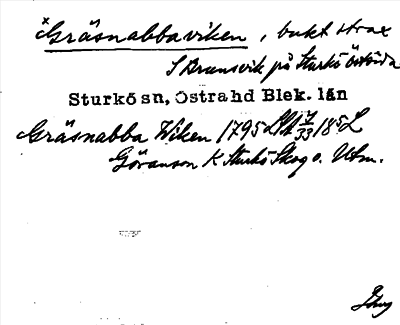 × Gräsnabbaviken, bukt strax
S Brunsvik på Sturkö östsida
Sturkö sn, Östra hd Blek. län
Gräsnabba Wiken 1795
Göranson K Sturkö Skog o. Utm.